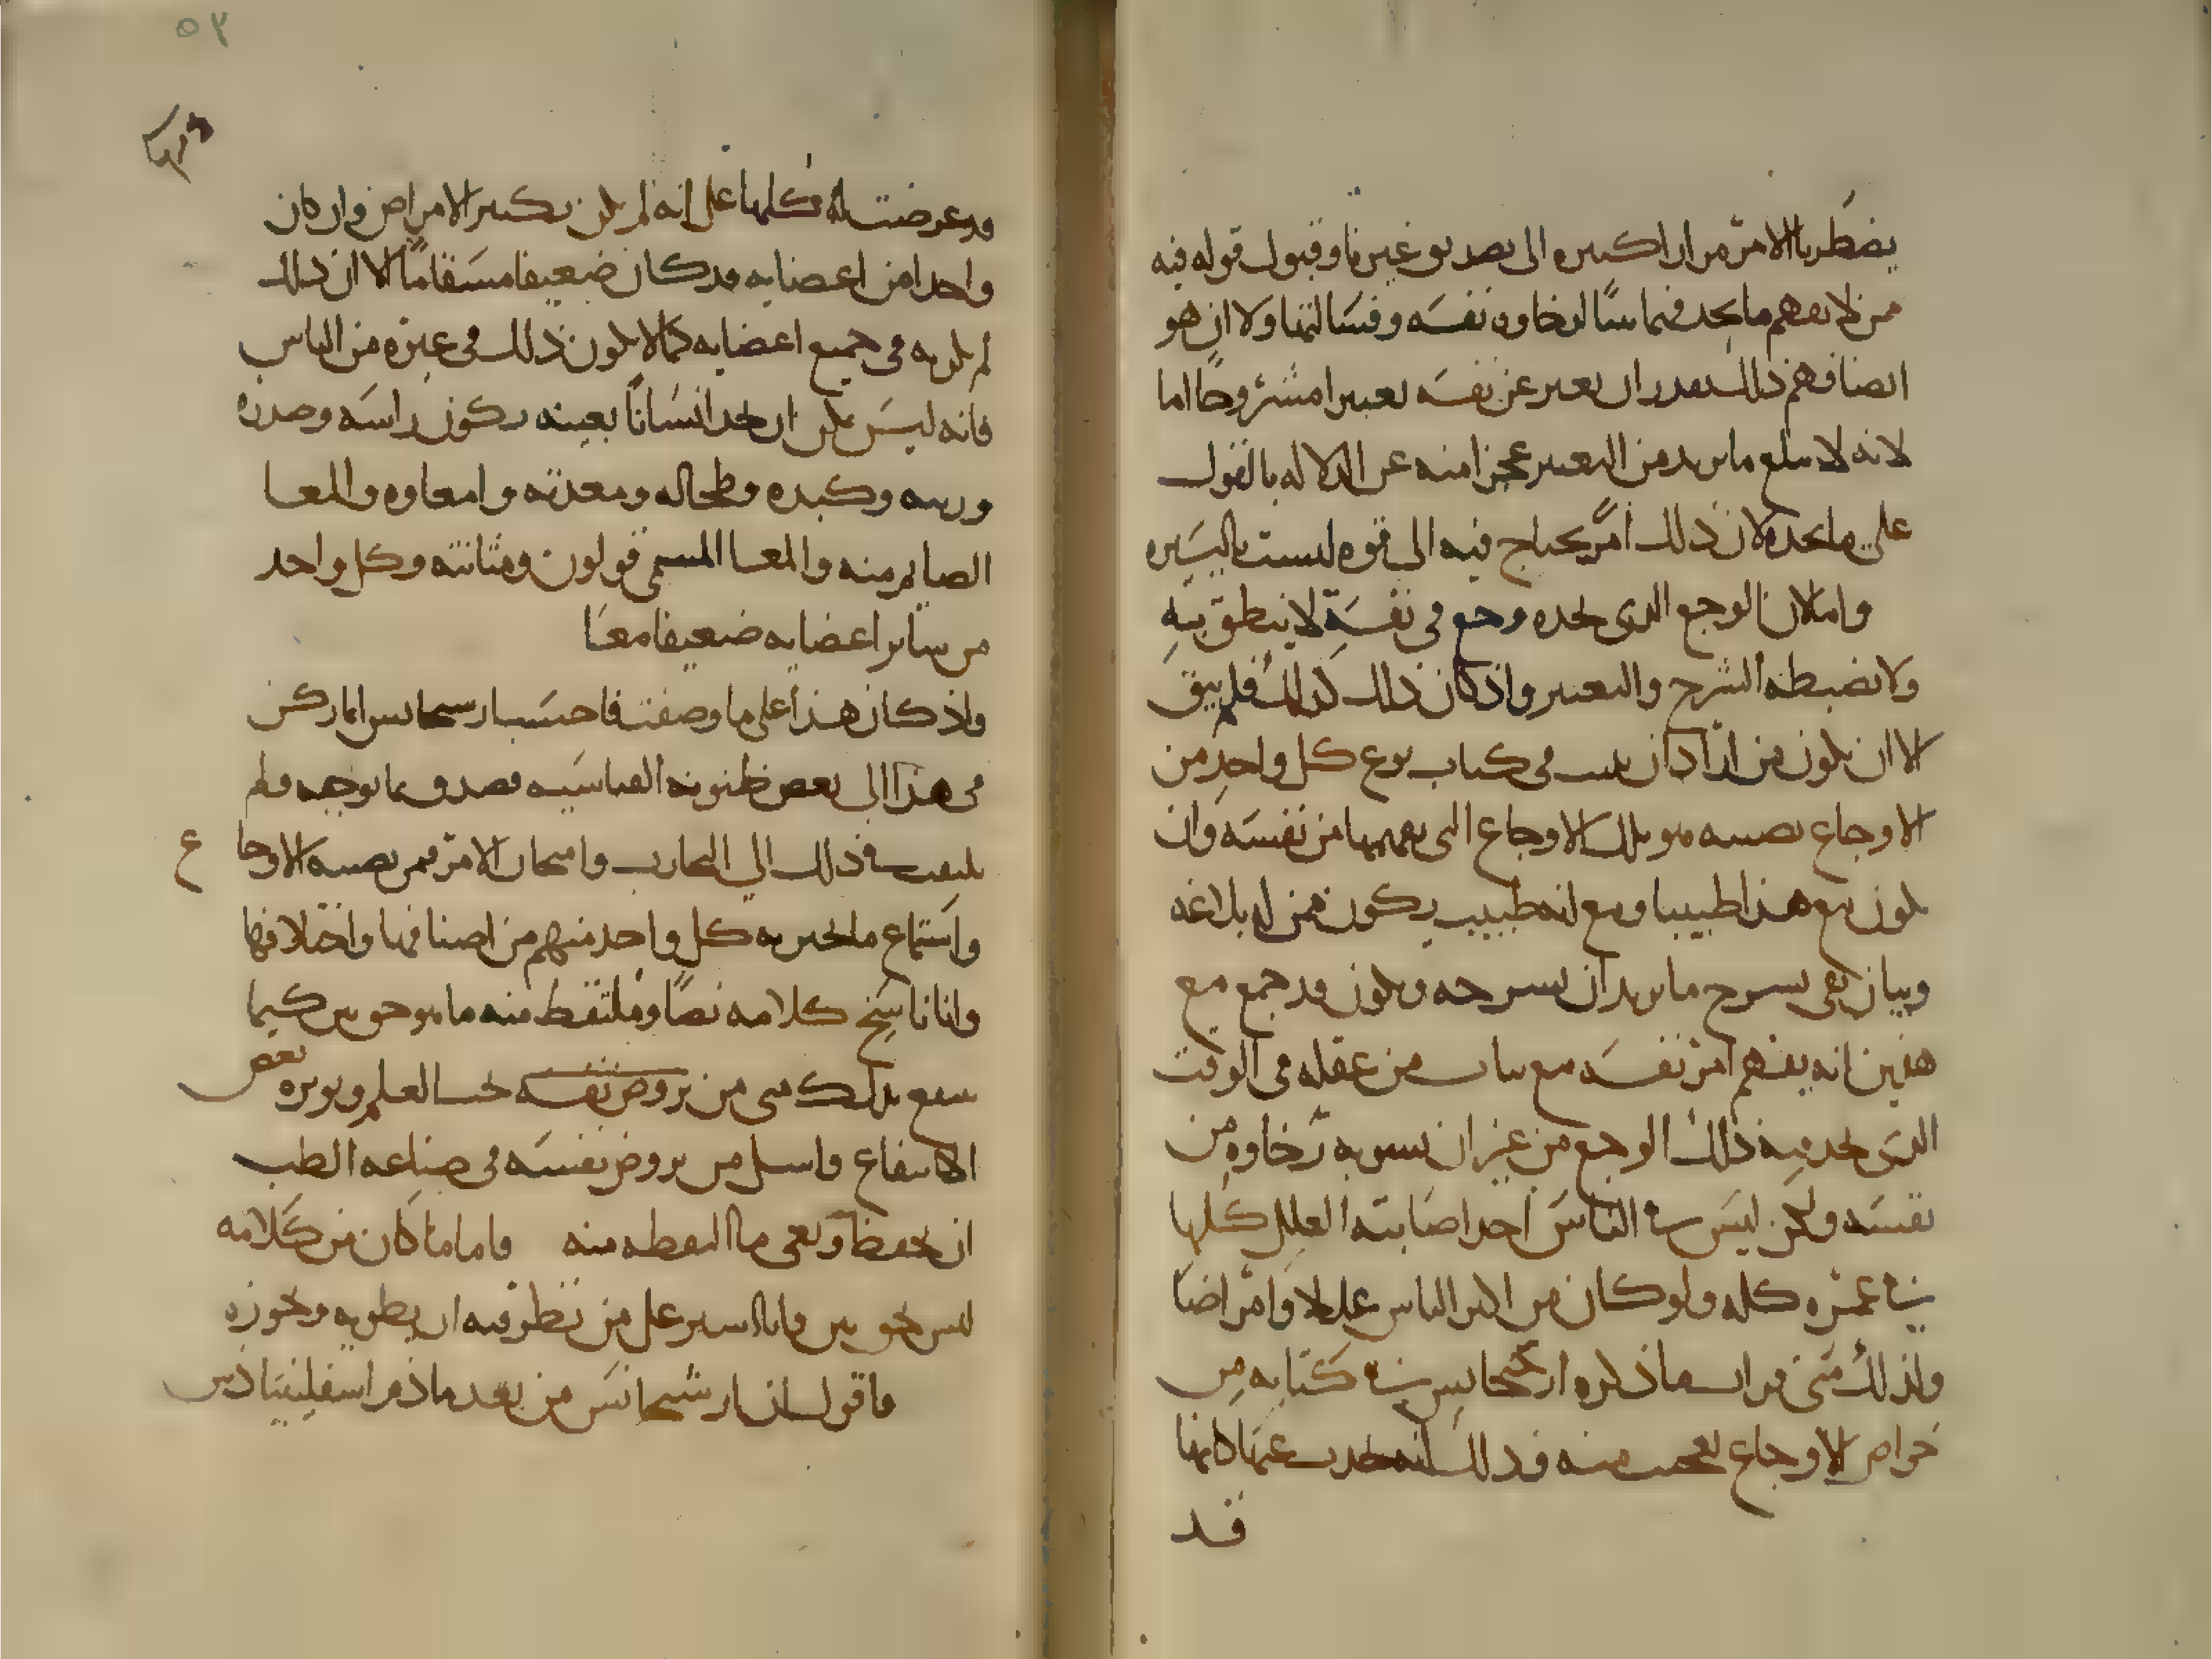 يضطرنا الامر مرارا كثيره الى تصديق غيرنا وقبول قوله فيه
ممن لا يفهم ما يجد فهما بينا لرخاوه نفسه وفسالتها ولا ان هو
ايضا فهم ذلك يقدر ان يعبر عن نفسه تعبيرا مشروحا اما
لانه لا يبلغ ما يريد من التعبير عجزا منه عن الدلاله بالقول
على ما يجده لان ذلك امر يحتاج فيه الى قوه ليست باليسيره
واما لان الوجع الذي يجده وجع في نفسه لا ينطق به
ولا يضبطه الشرح والتعبير واذ كان ذلك كذلك فلم يبق
الا ان يكون من اراد ان يثبت في كتاب نوع كل واحد من
الاوجاع تصيبه هو تلك الاوجاع التي يفهمها من نفسه وان
يكون مع هذا طبيبا ومع انه طبيب يكون ممن له بلاغه
وبيان يفي بشرح ما يريد ان يشرحه ويكون قد جمع مع
هذين انه يفهم امر نفسه مع ثبات من عقله في الوقت
الذي يجد فيه ذلك الوجع من غير ان يشوبه رخاوه من
نفسه ولكن ليس في الناس احد اصابته العلل كلها
في عمره كله ولو كان من اكثر الناس عللا وامراضا
ولذلك متى قرات ما ذكره ارشيجانس في كتابه من
خواص الاوجاع تعجبت منه وذلك انه يحدث عنها كانها
قد
٥٢
قد عرضت له كلها على انه لم يكن بكثير الامراض وان كان
واحدا من اعضايه قد كان ضعيفا مسقاما الا ان ذلك
لم يكن به في جميع اعضايه كما لا يكون ذلك في غيره من الناس
فانه ليس يمكن ان تجد انسانا بعينه يكون راسه وصدره
وريته وكبده وطحاله ومعدته وامعاوه والمعا
الصايم منه والمعا المسمى قولون ومثانته وكل واحد
من ساير اعضايه ضعيفا معا
واذ كان هذا على ما وصفت فاحسب ارشيجانس انما ركن
في هذا الى بعض ظنونه القياسيه فصدق بما توجبه ولم
يلتفت في ذلك الى التجارب وامتحان الامر فيمن تصيبه الاوجاع
واستماع ما يخبر به كل واحد منهم من اصنافها واختلافها
وانا ناسخ كلامه نصا وملتقط منه ما هو حق بين كيما
ينتفع بذلك كل من يروض نفسه لحب العلم ويوثره بعض
الانتفاع واسل من يروض نفسه في صناعه الطب
ان يحفظ ويعي ما التقطه منه واما ما كان من كلامه
ليس بحق بين فانا اشير على من نظر فيه ان يطويه ويجوزه
فاقول ان ارشيجانس من بعد ما ذم اسقلبيادس